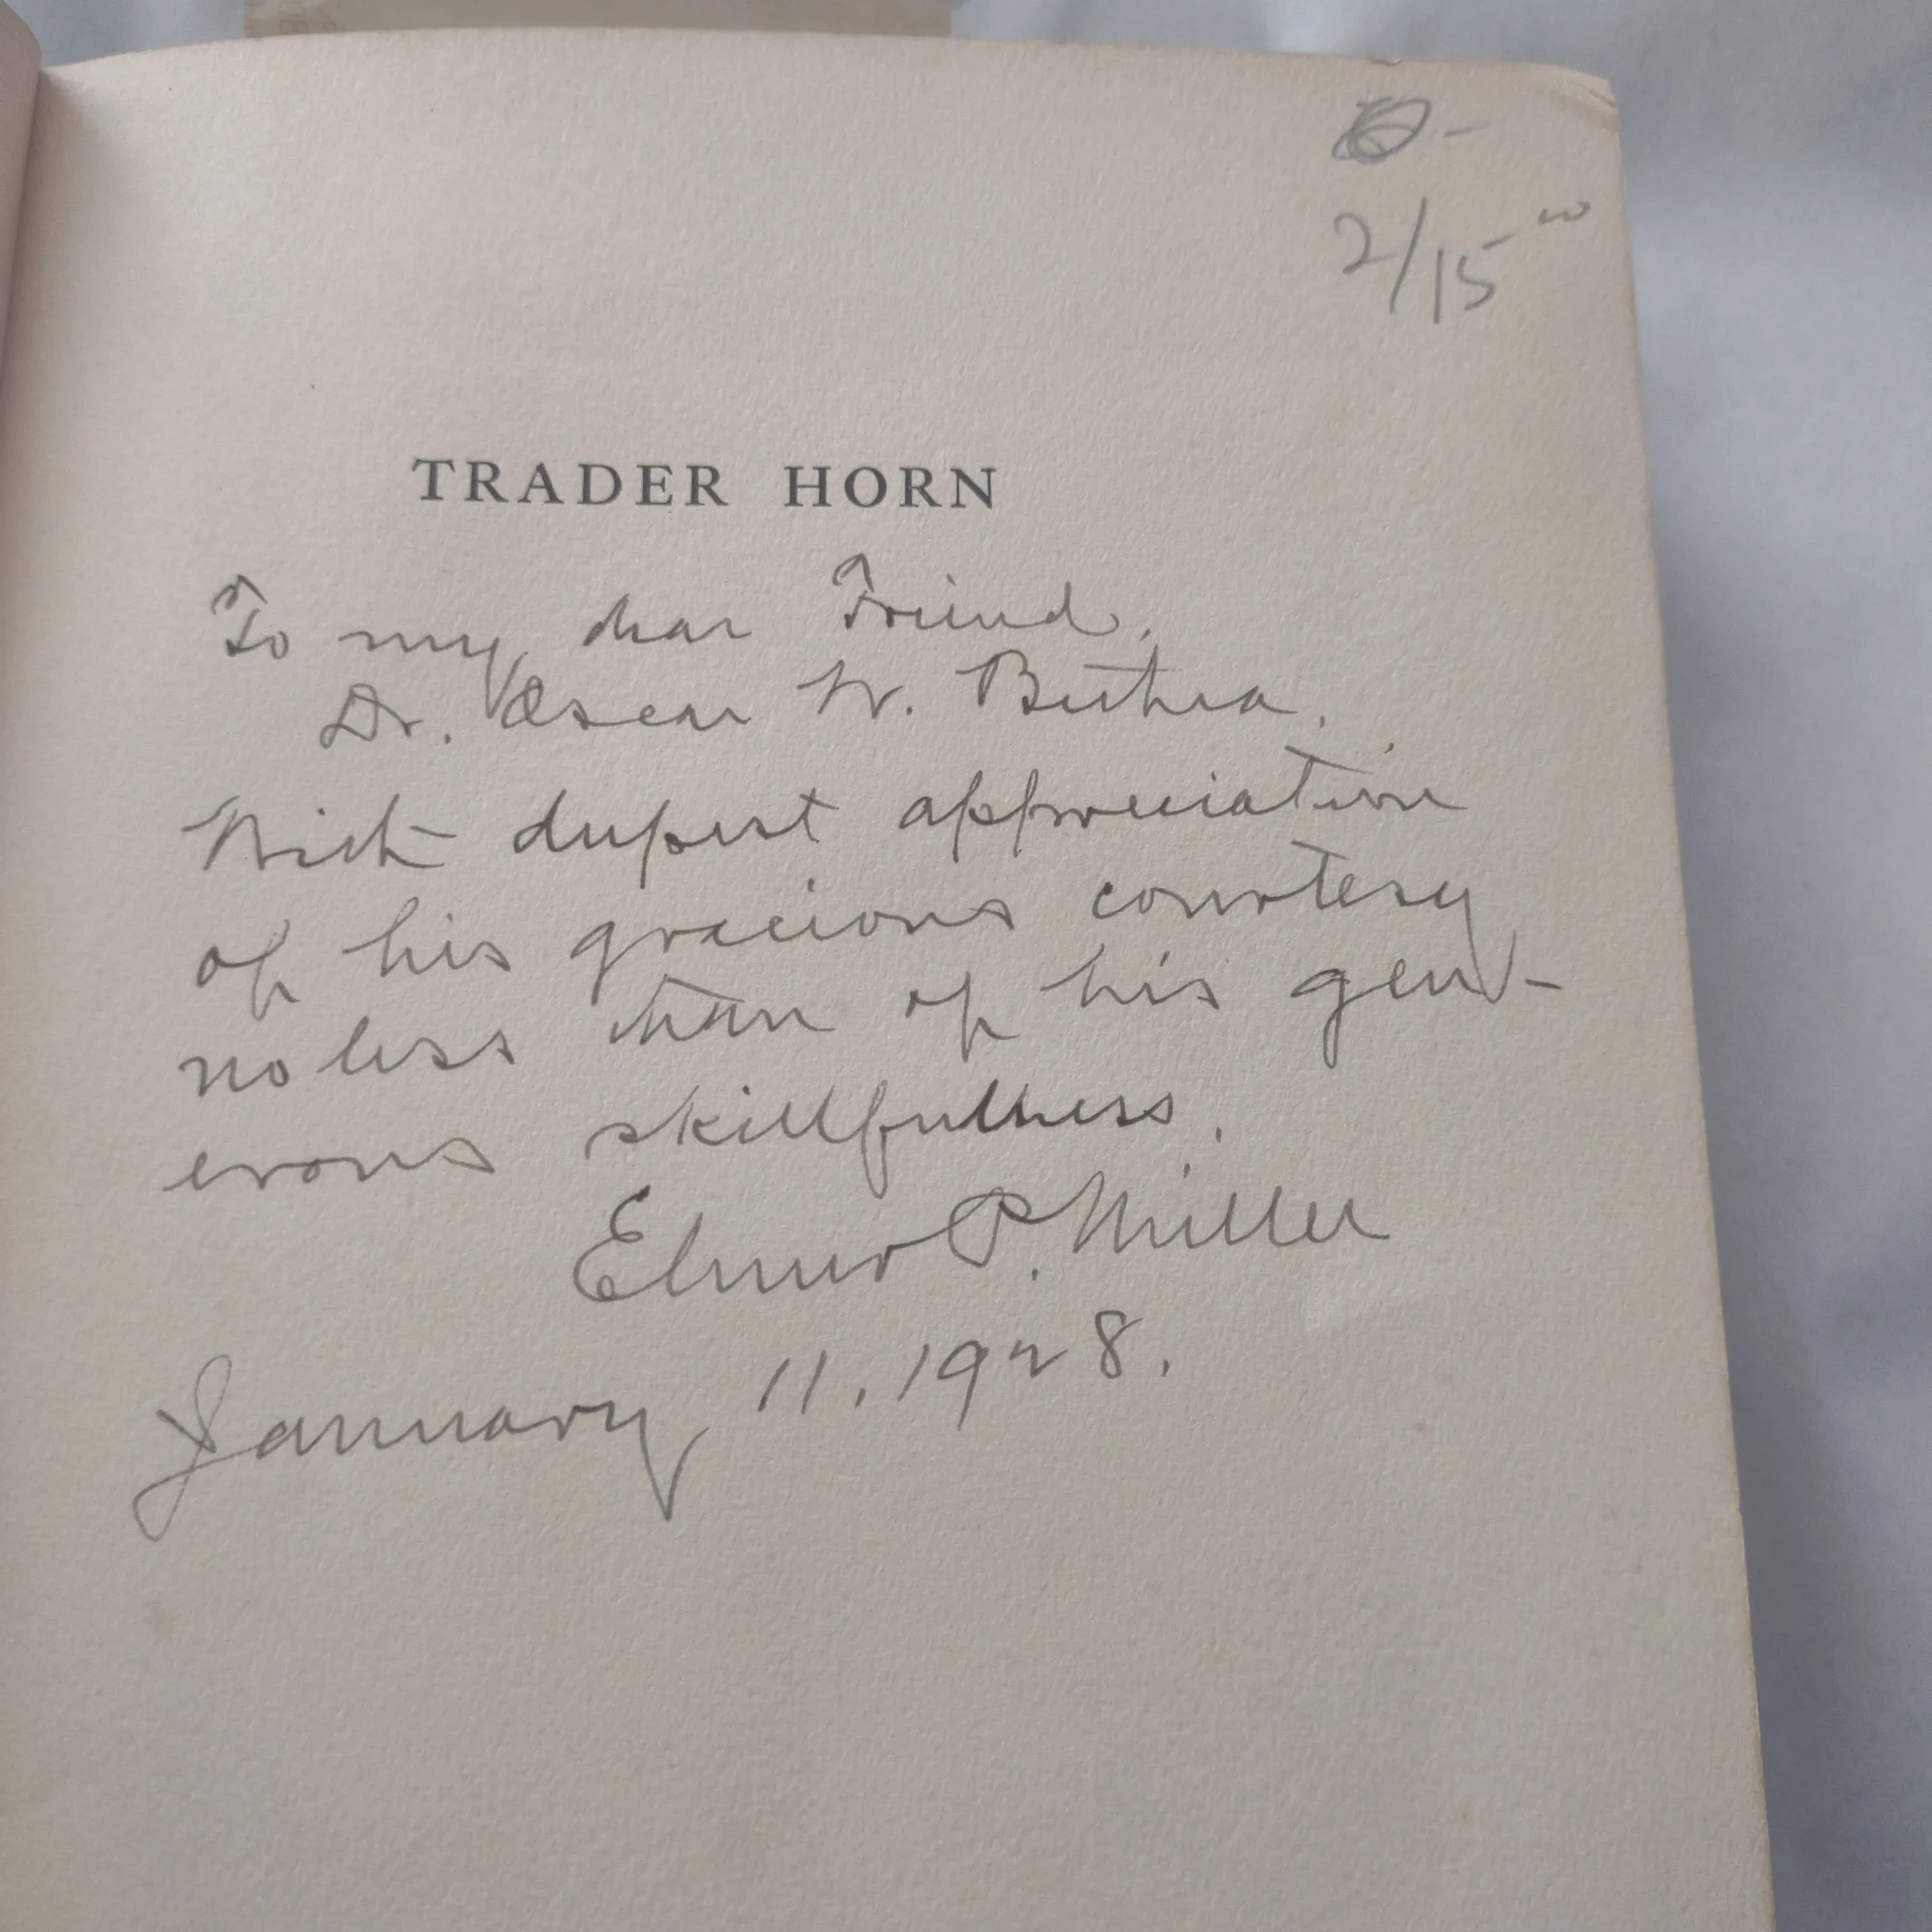 2/15 00
TRADER HORN
To my dear Friend,
Dr. Oscar W. Bethea.
With deepest appreciation
of his gracious courtesy
no less than of his gen-
erous skillfulness.
Elmer P. Miller
January 11, 1928.